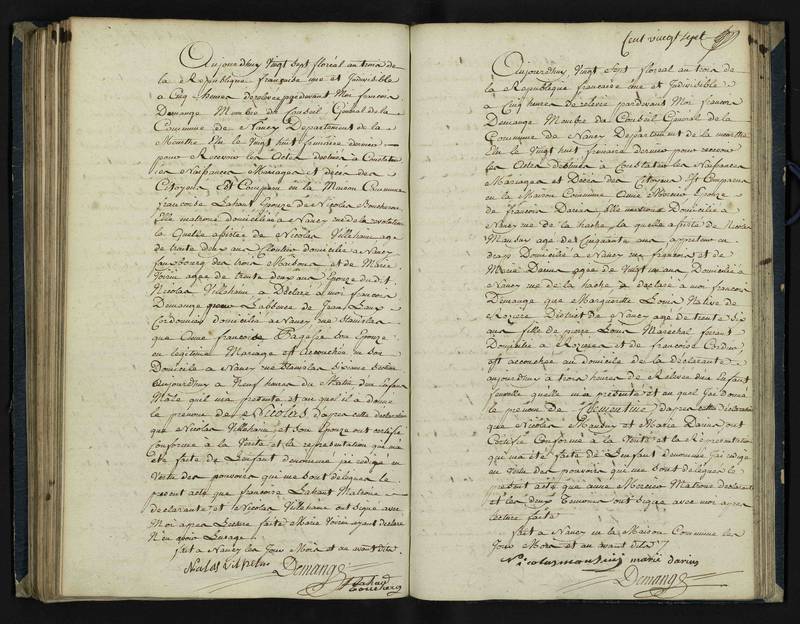 Aujourdhuy Vingt Sept floréal an trois de
la République françoise une et Indivisible
a Cinq heures de relevée pardevant Moi francois
Demange Membre du Conseil Général de la
Commune de Nancy Departement de la
Meurthe Elû le Vingt huit frimaire dernier
pour Recevoir les Actes destinés à Constater
les Naissances Mariages et décès des
Citoyens Est Comparu en la Maison Commune
francoise Lahaut Epouse de Nicolas
Elle matrone domiciliée a Nancy rue de la
la Quelle assistée de Nicolas Villehaine age
de trente deux ans Cloutier domicilié a Nancy
fauxbourg des trois Maisons et de Marie
Voirin agée de trente deux ans Epouse dudit
Nicolas Villehaine a Déclaré à moi francois
Demange L'absence de Jean
Cordonnier domicilié a Nancy rue Stanislas
que Anne francoise son Epouse
en legitime Mariage est Accouchée en son
Domicile a Nancy rue Stanislas
aujourdhuy a Neuf heures du Matin d'un Enfant
Mâle qu'il m'a présenté et au quel il a donné
le prénom de Nicolas d'après cette déclaration
que Nicolas Villehaine et son Epouse ont certifié
conforme à la Vérité et la représentation qui m'a
été faite de L'enfant dénommé j'ai rédigé en
Vertu des pouvoirs qui me sont délégués le
présent acte que francoise Lahaut Matrone
déclarante et Nicolas Villehaine ont Signé avec
Moi apres Lecture faite Marie Voirin ayant déclaré
N'en avoir L'usage
fait a Nancy les Jour Mois et an avant dits
Demange
Cent vingt sept
Aujourdhuy Vingt Sept floreal an trois de
la République francaise une et Indivisible
a Cinq heures De relevée pardevant Moi francois
Demange Membre du Conseil Général de la
Commune de Nancy Departement de la meurthe
Elû le Vingt huit frimaire dernier pour recevoir
les Actes destinés à Constater les Naissances
Mariages et Décès des Citoyens Est Comparue
en la Maison Commune Anne Mercier Epouse
de francois Elle matrone Domiciliée a
Nancy rue de la hache, la quelle assistée de Nicolas
Mansuy age de Cinquante ans
Domicilié a Nancy rue et de
Marie agée de Vingt ans Domiciliée a
Nancy rue de la hache a declaré a moi francois
Demange que Marguerite Louis Native de
Rozières District de Nancy agée de trente Six
ans fille de pierre Louis Maréchal ferant
Domicilié a Rozieres et de francoise
est accouchée au domicile de la déclarante
aujourdhuy a trois heures de Relevée d'un Enfant
femelle quelle m'a présenté et au quel j'ai Donné
le prénom de Clementine, d'après cette Déclaration
que Nicolas Mansuy et Marie ont
Certifié Conforme à la Vérité et la Représentation
qui m'a été faite de L'enfant Dénommé j'ai rédigé
en Vertu des pouvoirs qui me sont délégués le
présent acte que anne Mercier Matrone déclarante
et les deux Temoins ont Signé avec moi apres
lecture faite
fait a Nancy en la Maison Commune les
Jour Mois et an avant dits
Nicolas mansuy marie
Demange